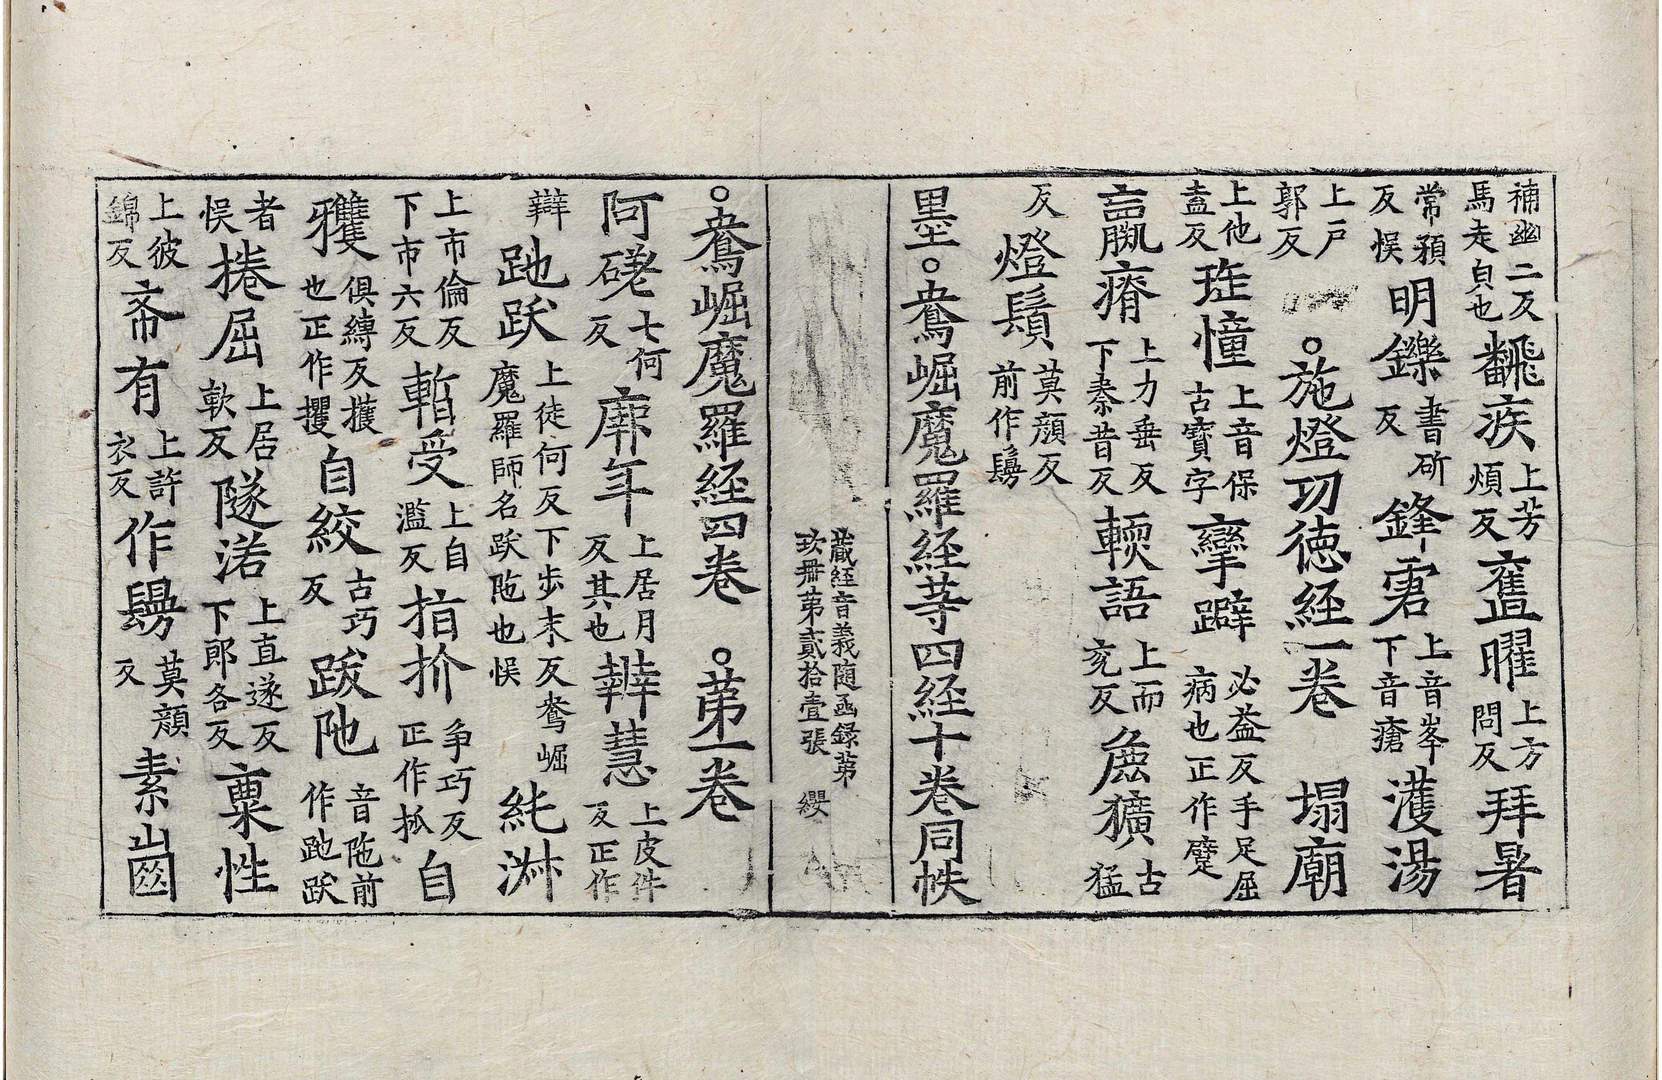 補幽二反馬走皃也飜疾上芳煩反奮曜上方問反拜暑
常預反悮明鑠書斫反鋒䨥上音峯下音瘡濩湯
上戶郭反　○施燈功德経一卷　塌廟
上他盍反琟憧上音保古寶字攣躃必益反手足屈病也正作躄
羸瘠上力垂反下秦昔反輭語上而兖反麁獷古猛
反燈鬚莫顔反前作鬘
墨○鴦崛魔羅経䓁四経十卷同帙
藏経音義随函録第
玖冊第貳拾壹張　纓
○鴦崛魔羅経四卷　○第一卷
阿磋七何反𢊍年上居月反其也辯慧上皮件反正作
辯跪跋上徒何反下步末反鴦崛魔羅師名跋陁也悮純淋
上市倫反下市六反暫受上自濫反指抓争巧反正作抓自
玃俱縛反擭也正作攫自絞古巧反跋阤音陁前作跪跋
者悮捲屈上居軟反隧渃上直遂反下郎各反稟性
上彼錦反斋有上許衣反作鬘莫顔反素齒